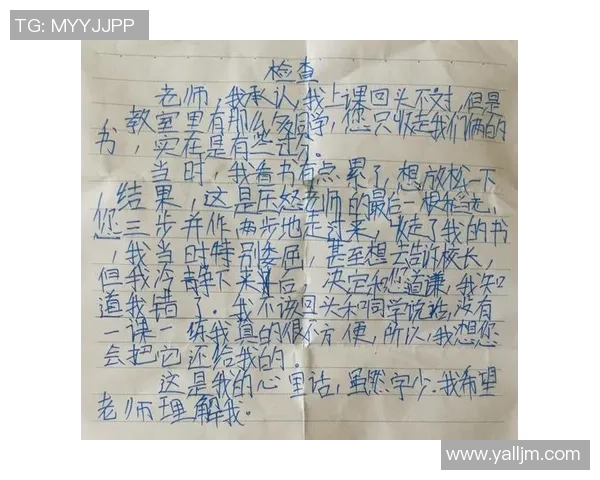 TG: MYYJJPP
检查
老师,我承认,我上课回头不对,但是
教室里有那么多同学,您只收走我们俩的
书,实在是有些过分。
当时,我看书有点累了,想放松一下
结果,这是压怒老师的最后一根稻草,
您三步并作两步地走过来,收走了我的书
,我当时特别委屈,甚至想去告诉校长,
但我冷静下来后,决定和您道谦,我知
道我错了。我不该回头和同学说话,没有
一课一练我真的很不方便,所以,我想您
会把它还给我的。
这是我的心里话,虽然字少.我希望
老师理解我。
www.yalljm.com